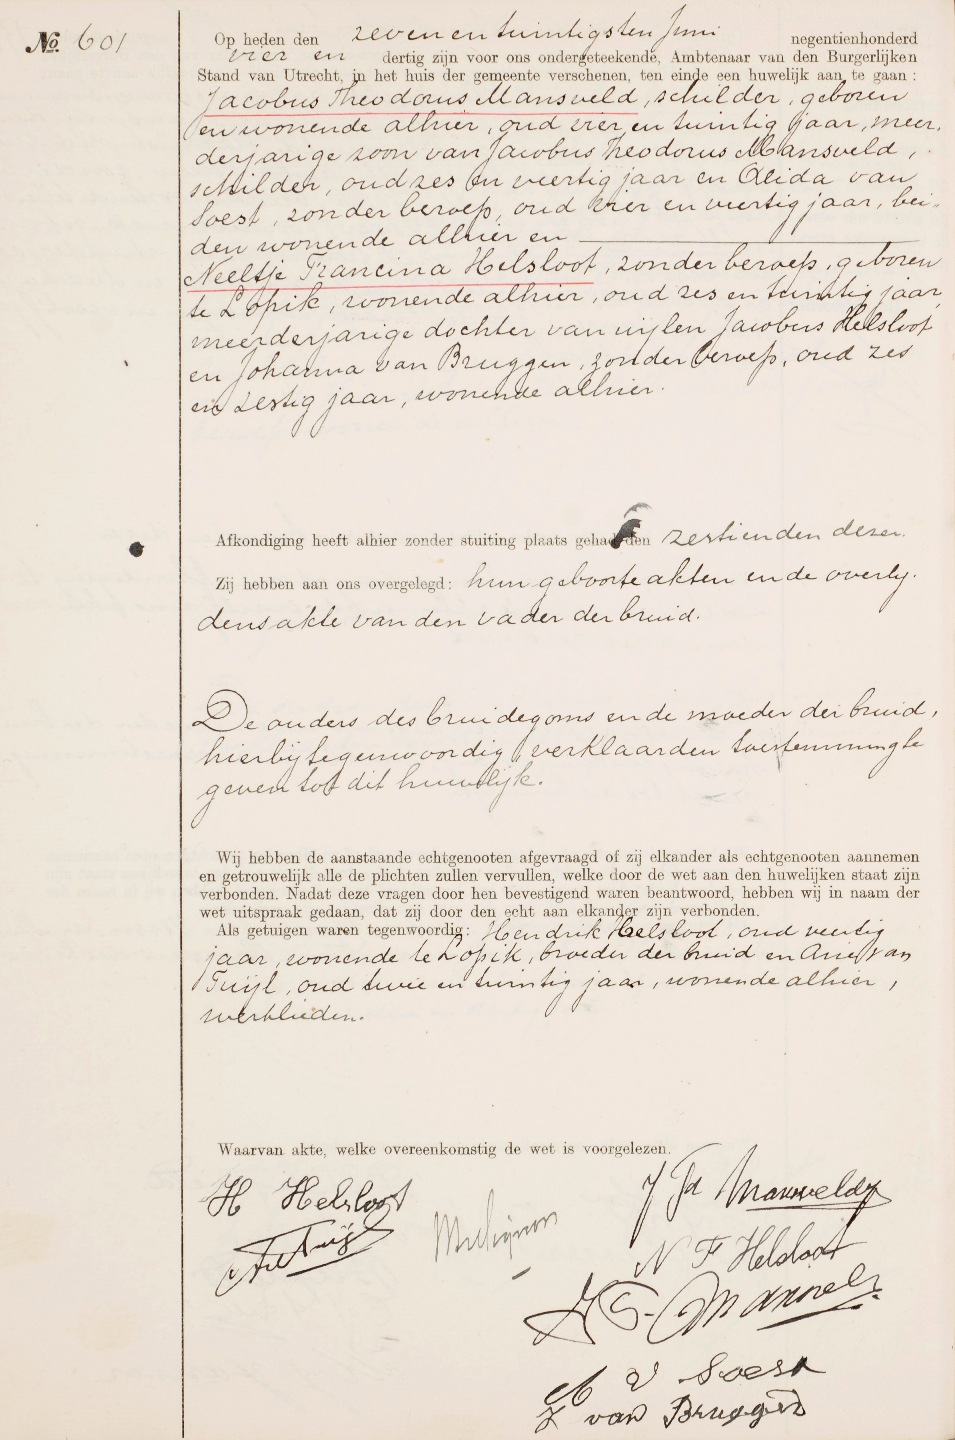 No. 601
Op heden den zevenentwintigsten Juni negentienhonderd
vier en dertig zijn voor ons ondergeteekende, Ambtenaar van den Burgerlijken
Stand van Utrecht, in het huis der gemeente verschenen, ten einde een huwelijk aan te gaan:
Jacobus Theodorus Mansveld, schilder, geboren
en wonende alhier, oud vier en twintig jaar, meer-
derjarige zoon van Jacobus Theodorus Mansveld,
schilder, oud zes en veertig jaar en Alida van
Soest, zonder beroep, oud vier en veertig jaar, bei-
den wonende alhier en
Neeltje Francina Helsloot, zonder beroep, geboren
te Lopik, wonende alhier, oud zes en twintig jaar,
meerderjarige dochter van wijlen Jacobus Helsloot
en Johanna van Bruggen, zonder beroep, oud zes
en zestig jaar, wonende alhier.
Afkondiging heeft alhier zonder stuiting plaats gehad den zestienden dezer.
Zij hebben aan ons overgelegd: hun geboorteakten en de overlij-
densakte van den vader der bruid.
De ouders des bruidegoms en de moeder der bruid,
hierbij tegenwoordig, verklaarden toestemming te
geven tot dit huwelijk.
Wij hebben de aanstaande echtgenooten afgevraagd of zij elkander als echtgenooten aannemen
en getrouwelijk alle de plichten zullen vervullen, welke door de wet aan den huwelijken staat zijn
verbonden. Nadat deze vragen door hen bevestigend waren beantwoord, hebben wij in naam der
wet uitspraak gedaan, dat zij door den echt aan elkander zijn verbonden.
Als getuigen waren tegenwoordig: Hendrik Helsloot, oud veertig
jaar, wonende te Lopik, broeder der bruid en Arie van
Tuijl, oud twee en twintig jaar, wonende alhier,
werklieden.
Waarvan akte, welke overeenkomstig de wet is voorgelezen.
H Helsloot
J Th Mansveld
N F Helsloot
A v Soest
J van Bruggen